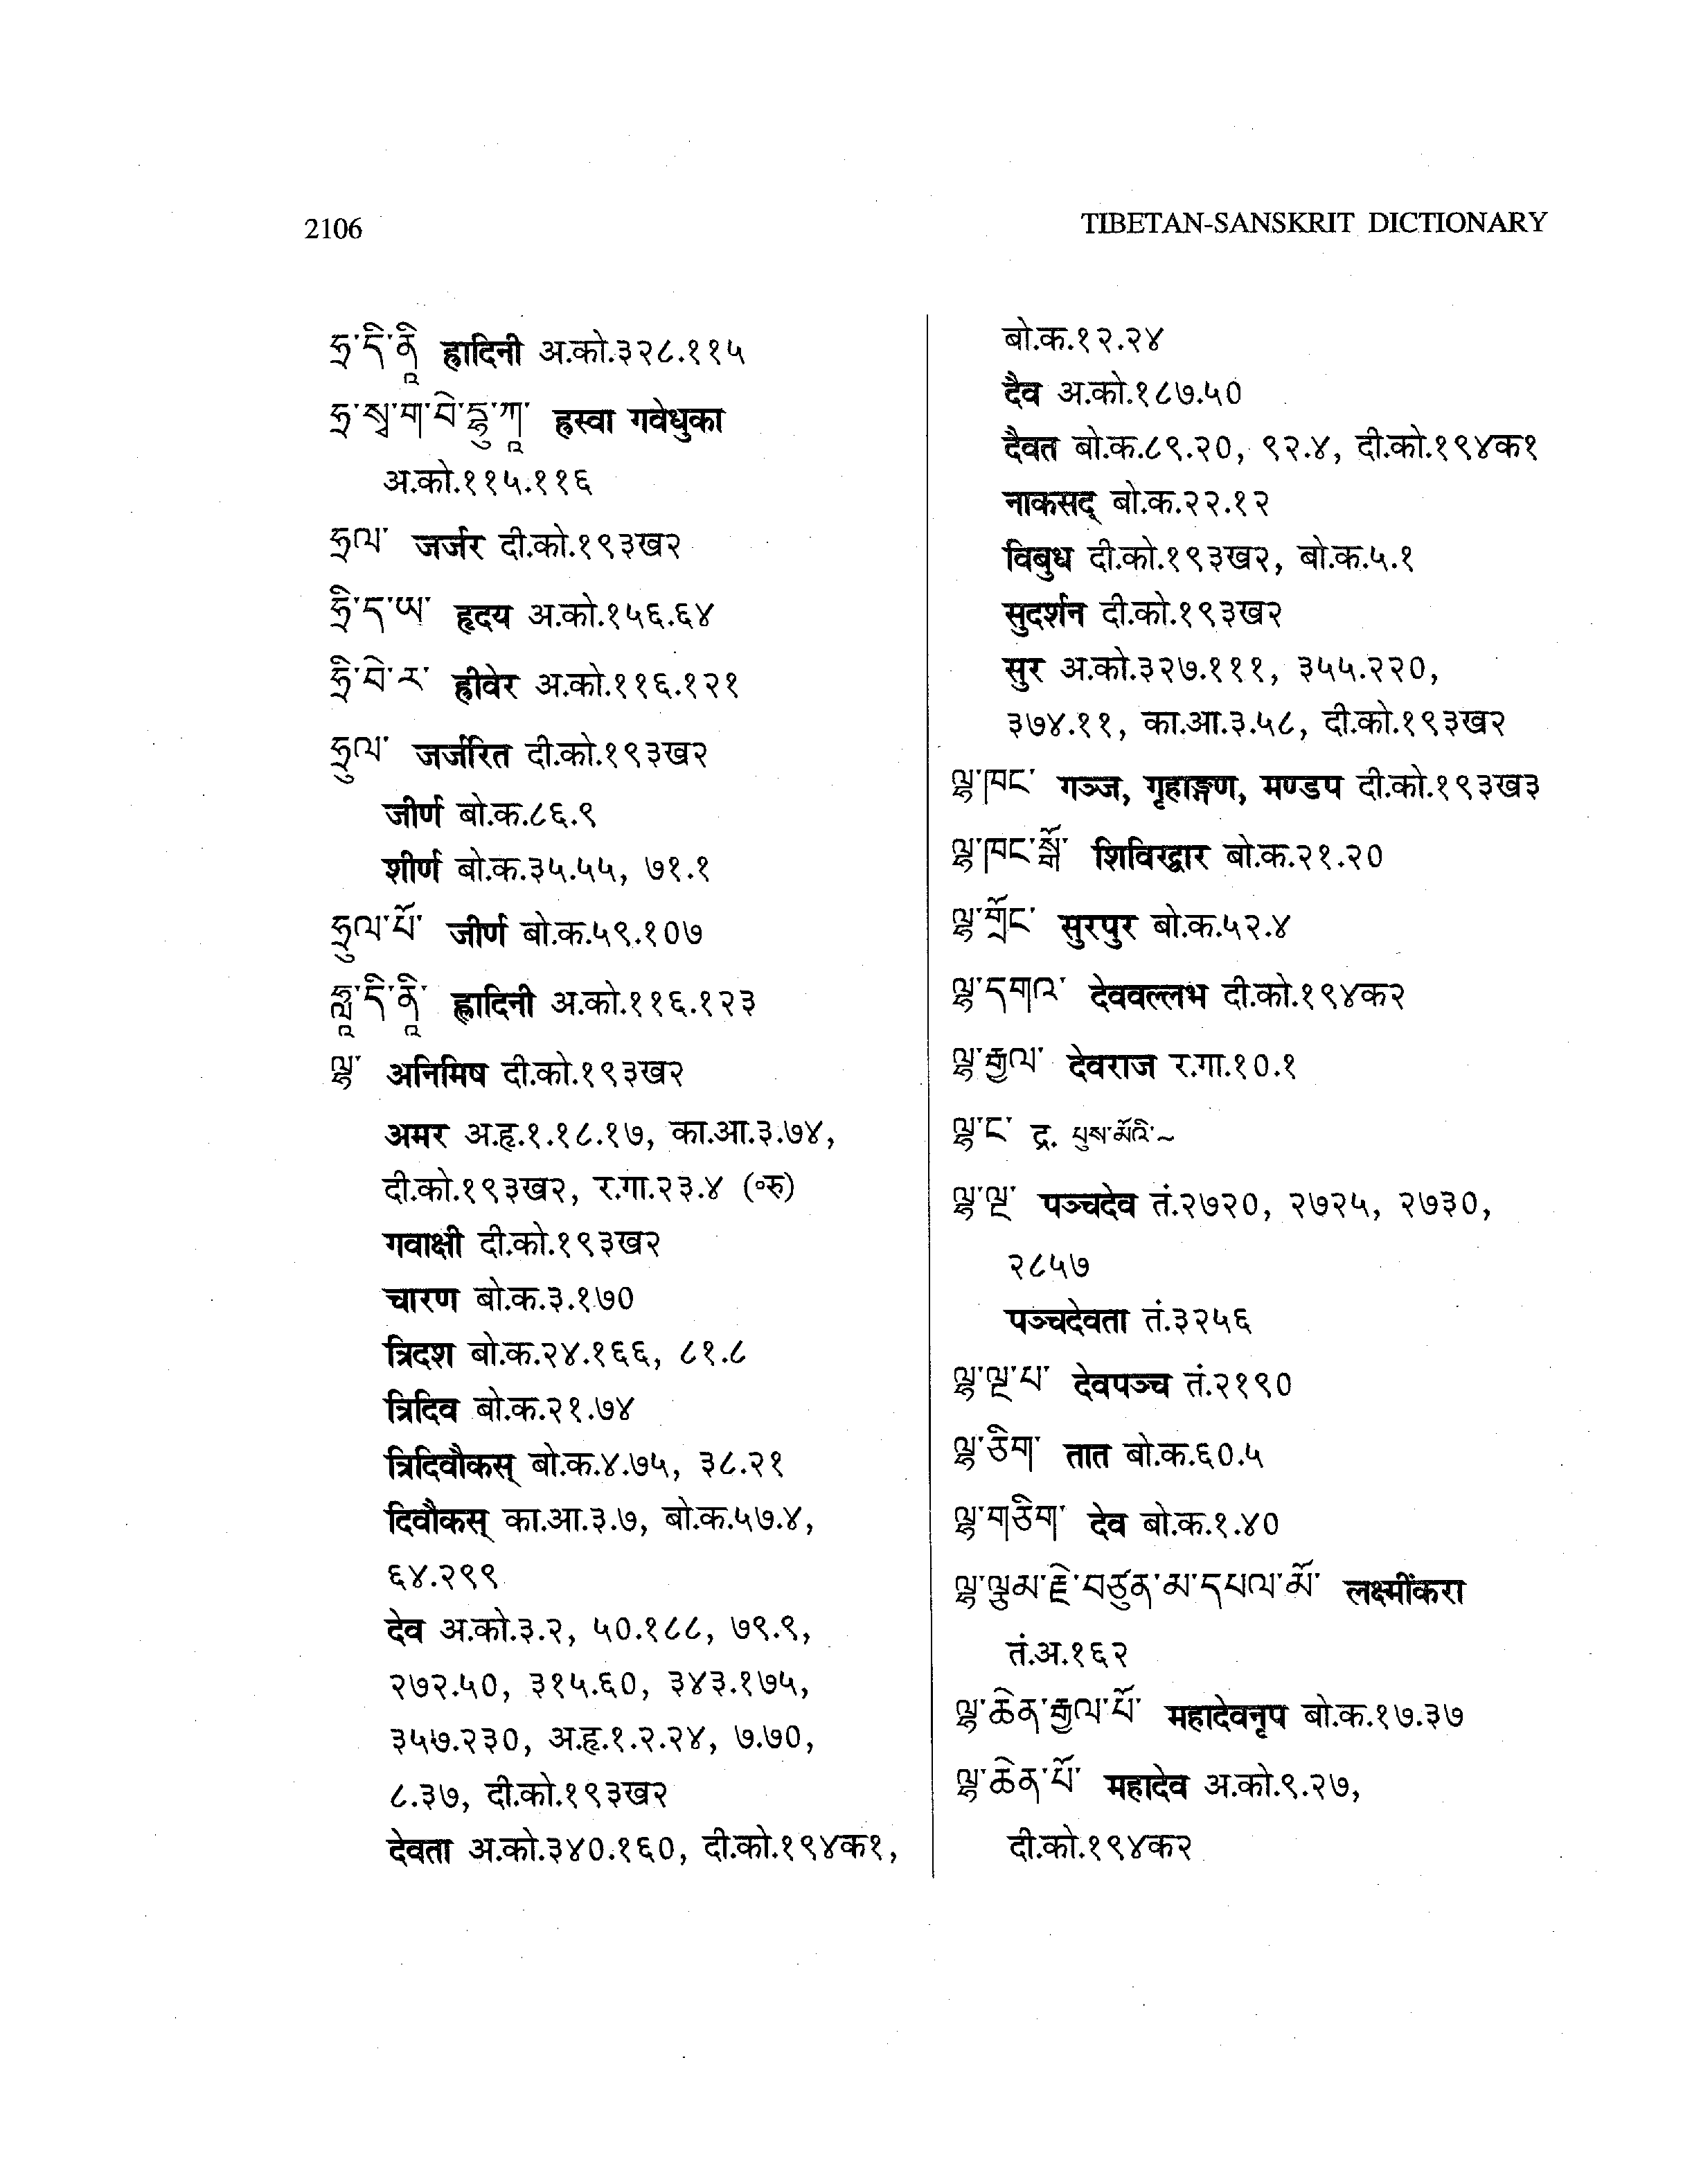 2106
TIBETAN-SANSKRIT DICTIONARY
ཧྲ་དི་ནཱི ह्रादिनी अ.को.३२८.११५
ཧྲ་སྭ་ག་བེ་དྷུ་ཀཱ་ ह्रस्वा गवेधुका
अ.को.११५.११६
ཧྲལ་ जर्जर दी.को.१९३ख२
ཧྲི་ད་ཡ་ हृदय अ.को.१५६.६४
ཧྲི་བེ་ར་ ह्रीवेर अ.को.११६.१२१
ཧྲུལ་ जर्जरित दी.को.१९३ख२
जीर्ण बो.क.८६.९
शीर्ण बो.क.३५.५५, ७१.१
ཧྲུལ་པོ་ जीर्ण बो.क.५९.१०७
ཧླཱ་དི་ནཱི་ ह्लादिनी अ.को.११६.१२३
ལྷ་ अनिमिष दी.को.१९३ख२
अमर अ.हृ.१.१८.१७, का.आ.३.७४,
दी.को.१९३ख२, र.गा.२३.४ (॰रु)
गवाक्षी दी.को.१९३ख२
चारण बो.क.३.१७०
त्रिदश बो.क.२४.१६६, ८१.८
त्रिदिव बो.क.२१.७४
त्रिदिवौकस् बो.क.४.७५, ३८.२१
दिवौकस् का.आ.३.७, बो.क.५७.४,
६४.२९९
देव अ.को.३.२, ५०.१८८, ७९.९,
२७२.५०, ३१५.६०, ३४३.१७५,
३५७.२३०, अ.हृ.१.२.२४, ७.७०,
८.३७, दी.को.१९३ख२
देवता अ.को.३४०.१६०, दी.को.१९४क१,
बो.क.१२.२४
दैव अ.को.१८७.५०
दैवत बो.क.८९.२०, ९२.४, दी.को.१९४क१
नाकसद् बो.क.२२.१२
विबुध दी.को.१९३ख२, बो.क.५.१
सुदर्शन दी.को.१९३ख२
सुर अ.को.३२७.१११, ३५५.२२०,
३७४.११, का.आ.३.५८, दी.को.१९३ख२
ལྷ་ཁང་ गञ्ज, गृहाङ्गण, मण्डप दी.को.१९३ख३
ལྷ་ཁང་སྒོ་ शिविरद्वार बो.क.२१.२०
ལྷ་གྲོང་ सुरपुर बो.क.५२.४
ལྷ་དགའ་ देववल्लभ दी.को.१९४क२
ལྷ་རྒྱལ་ देवराज र.गा.१०.१
ལྷ་ང་ द्र. པུས་མོའི་~
ལྷ་ལྔ་ पञ्चदेव तं.२७२०, २७२५, २७३०,
२८५७
पञ्चदेवता तं.३२५६
ལྷ་ལྔ་པ་ देवपञ्च तं.२१९०
ལྷ་ཅིག་ तात बो.क.६०.५
ལྷ་གཅིག་ देव बो.क.१.४०
ལྷ་ལྕམ་རྗེ་བཙུན་མ་དཔལ་མོ་ लक्ष्मींकरा
तं.अ.१६२
ལྷ་ཆེན་རྒྱལ་པོ་ महादेवनृप बो.क.१७.३७
ལྷ་ཆེན་པོ་ महादेव अ.को.९.२७,
दी.को.१९४क२